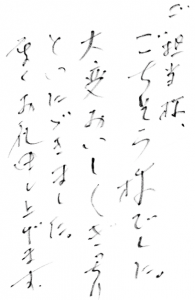 ご担当様、
ごちそう様でした。
大変おいしく
といただきました。
厚くお礼申し上げます。